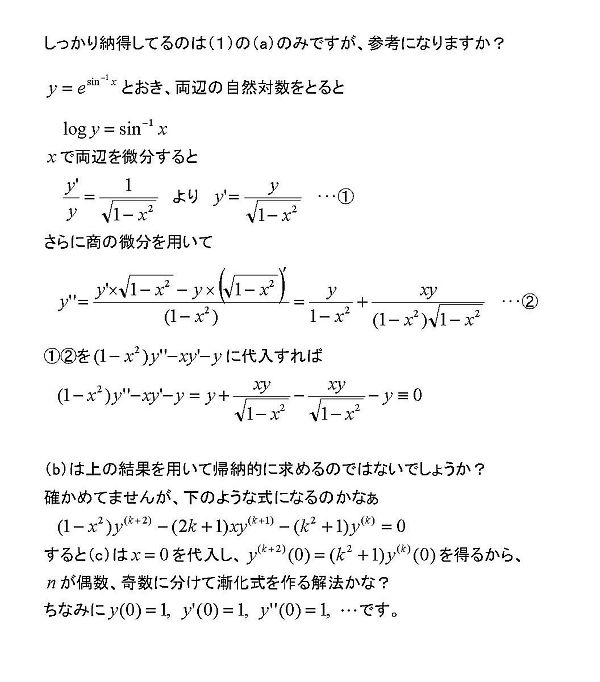 しっかり納得してるのは(1)の(a)のみですが、参考になりますか?
y = e^{sin^{-1} x} とおき、両辺の自然対数をとると
log y = sin^{-1} x
x で両辺を微分すると
y'/y = 1/√(1-x^2) より y' = y/√(1-x^2) …①
さらに商の微分を用いて
y'' = (y'×√(1-x^2) - y×(√(1-x^2))')/(1-x^2) = y/(1-x^2) + xy/((1-x^2)√(1-x^2)) …②
①②を(1-x^2)y''-xy'-y に代入すれば
(1-x^2)y''-xy'-y = y + xy/√(1-x^2) - xy/√(1-x^2) - y ≡ 0
(b)は上の結果を用いて帰納的に求めるのではないでしょうか?
確かめてませんが、下のような式になるのかなぁ
(1-x^2)y^{(k+2)} - (2k+1)xy^{(k+1)} - (k^2+1)y^{(k)} = 0
すると(c)は x = 0 を代入し、y^{(k+2)}(0) = (k^2+1)y^{(k)}(0) を得るから、
n が偶数、奇数に分けて漸化式を作る解法かな?
ちなみに y(0) = 1, y'(0) = 1, y''(0) = 1, …です。